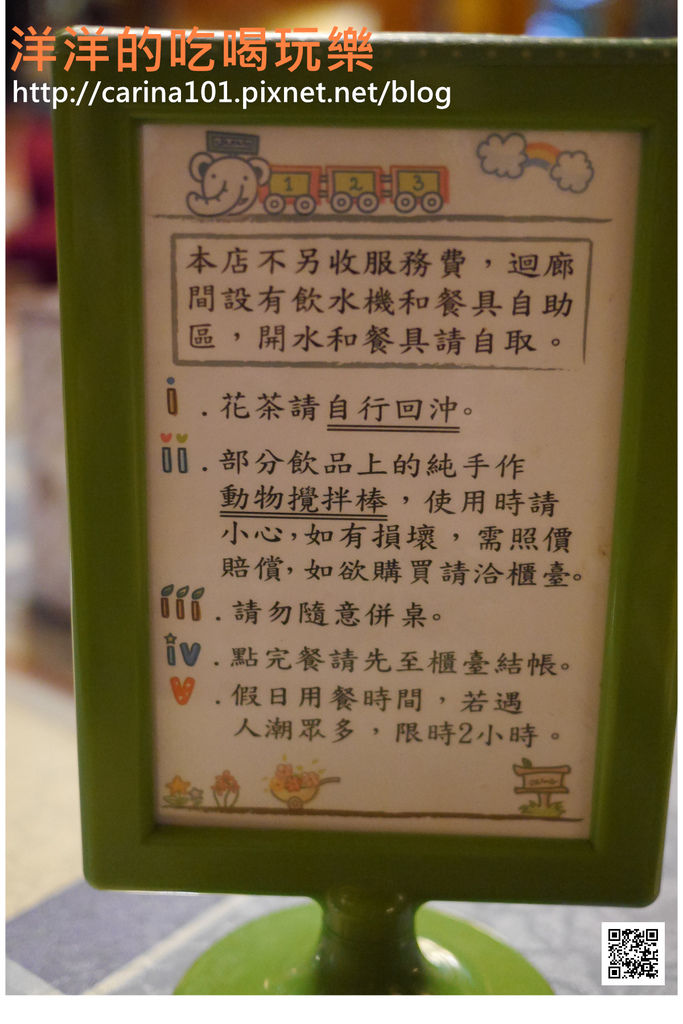 洋洋的吃喝玩樂
http://carina101.pixnet.net/blog
1 2 3
本店不另收服務費，迴廊
間設有飲水機和餐具自助
區，開水和餐具請自取。
i.花茶請自行回沖。
ii.部分飲品上的純手作
動物攪拌棒，使用時請
小心,如有損壞，需照價
賠償,如欲購買請洽櫃臺。
iii.請勿隨意併桌。
iv.點完餐請先至櫃臺結帳。
v.假日用餐時間，若遇
人潮眾多，限時2小時。